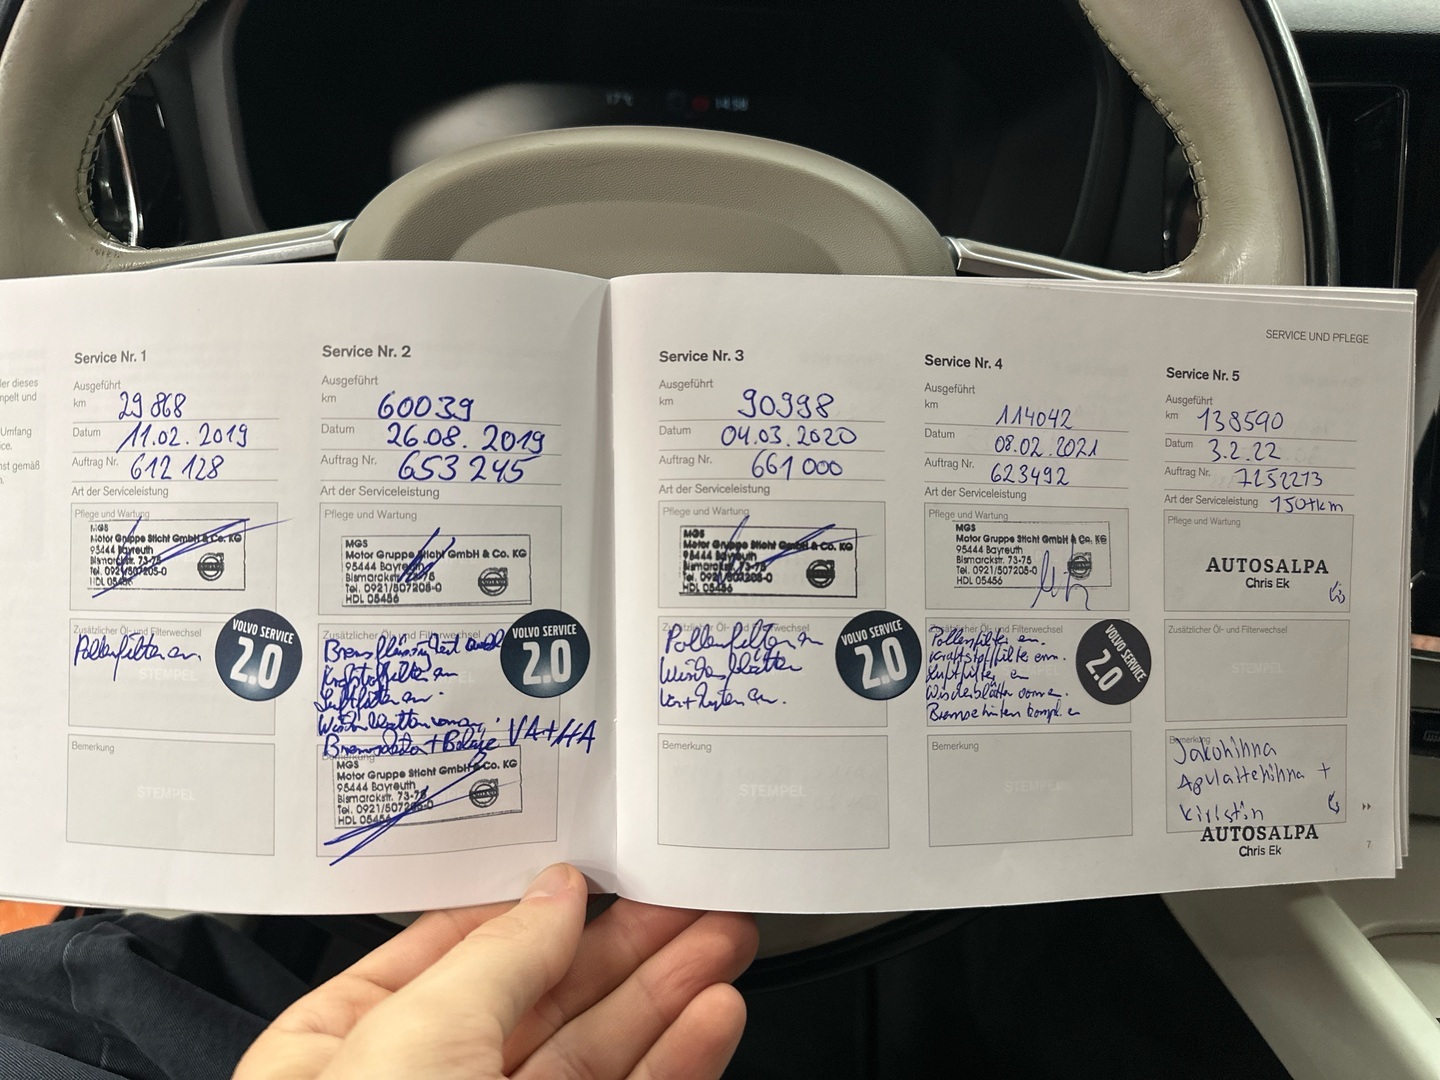 17°C
14:58
ler dieses
npelt und
Umfang
ce.
nst gemäß
n.
Service Nr. 1
Ausgeführt
km 29 868
Datum 11.02.2019
Auftrag Nr. 612 128
Art der Serviceleistung
Pflege und Wartung
MGS
Motor Gruppe Sticht GmbH & Co. KG
95444 Bayreuth
Bismarckstr. 73-75
Tel. 0921/507205-0
HDL 05456
VOLVO
Zusätzlicher Öl- und Filterwechsel
Pollenfilter ern.
STEMPEL
VOLVO SERVICE
2.0
Bemerkung
STEMPEL
Service Nr. 2
Ausgeführt
km 60039
Datum 26.08.2019
Auftrag Nr. 653 245
Art der Serviceleistung
Pflege und Wartung
MGS
Motor Gruppe Sticht GmbH & Co. KG
95444 Bayreuth
Bismarckstr. 73-75
Tel. 0921/507205-0
HDL 05456
VOLVO
Zusätzlicher Öl- und Filterwechsel
Bremsflüssigkeit
Kraftstoffilter ern
Luftfilter ern.
Wischerblätter vorn
Bremsscheiben + Beläge VA+HA
VOLVO SERVICE
2.0
Bemerkung
MGS
Motor Gruppe Sticht GmbH & Co. KG
95444 Bayreuth
Bismarckstr. 73-75
Tel. 0921/507205-0
HDL 05456
VOLVO
SERVICE UND PFLEGE
Service Nr. 3
Ausgeführt
km 90998
Datum 04.03.2020
Auftrag Nr. 661 000
Art der Serviceleistung
Pflege und Wartung
MGS
Motor Gruppe Sticht GmbH & Co. KG
95444 Bayreuth
Bismarckstr. 73-75
Tel. 0921/507205-0
HDL 05456
VOLVO
Zusätzlicher Öl- und Filterwechsel
Pollenfilter ern
Wischerblätter
ern.
VOLVO SERVICE
2.0
Bemerkung
STEMPEL
Service Nr. 4
Ausgeführt
km 114042
Datum 08.02.2021
Auftrag Nr. 623492
Art der Serviceleistung
Pflege und Wartung
MGS
Motor Gruppe Sticht GmbH & Co. KG
95444 Bayreuth
Bismarckstr. 73-75
Tel. 0921/507205-0
HDL 05456
VOLVO
Zusätzlicher Öl- und Filterwechsel
Pollenfilter ern
Kraftstofffilter ern.
Luftfilter ern
Wischerblätter vorne.
Bremse hinten kompl. ern
VOLVO SERVICE
2.0
Bemerkung
STEMPEL
Service Nr. 5
Ausgeführt
km 138590
Datum 3.2.22
Auftrag Nr. 7152213
Art der Serviceleistung 150tkm
Pflege und Wartung
AUTOSALPA
Chris Ek
Zusätzlicher Öl- und Filterwechsel
STEMPEL
Bemerkung
Jakohihna
Apulaitehihna +
kiristin
AUTOSALPA
Chris Ek
7